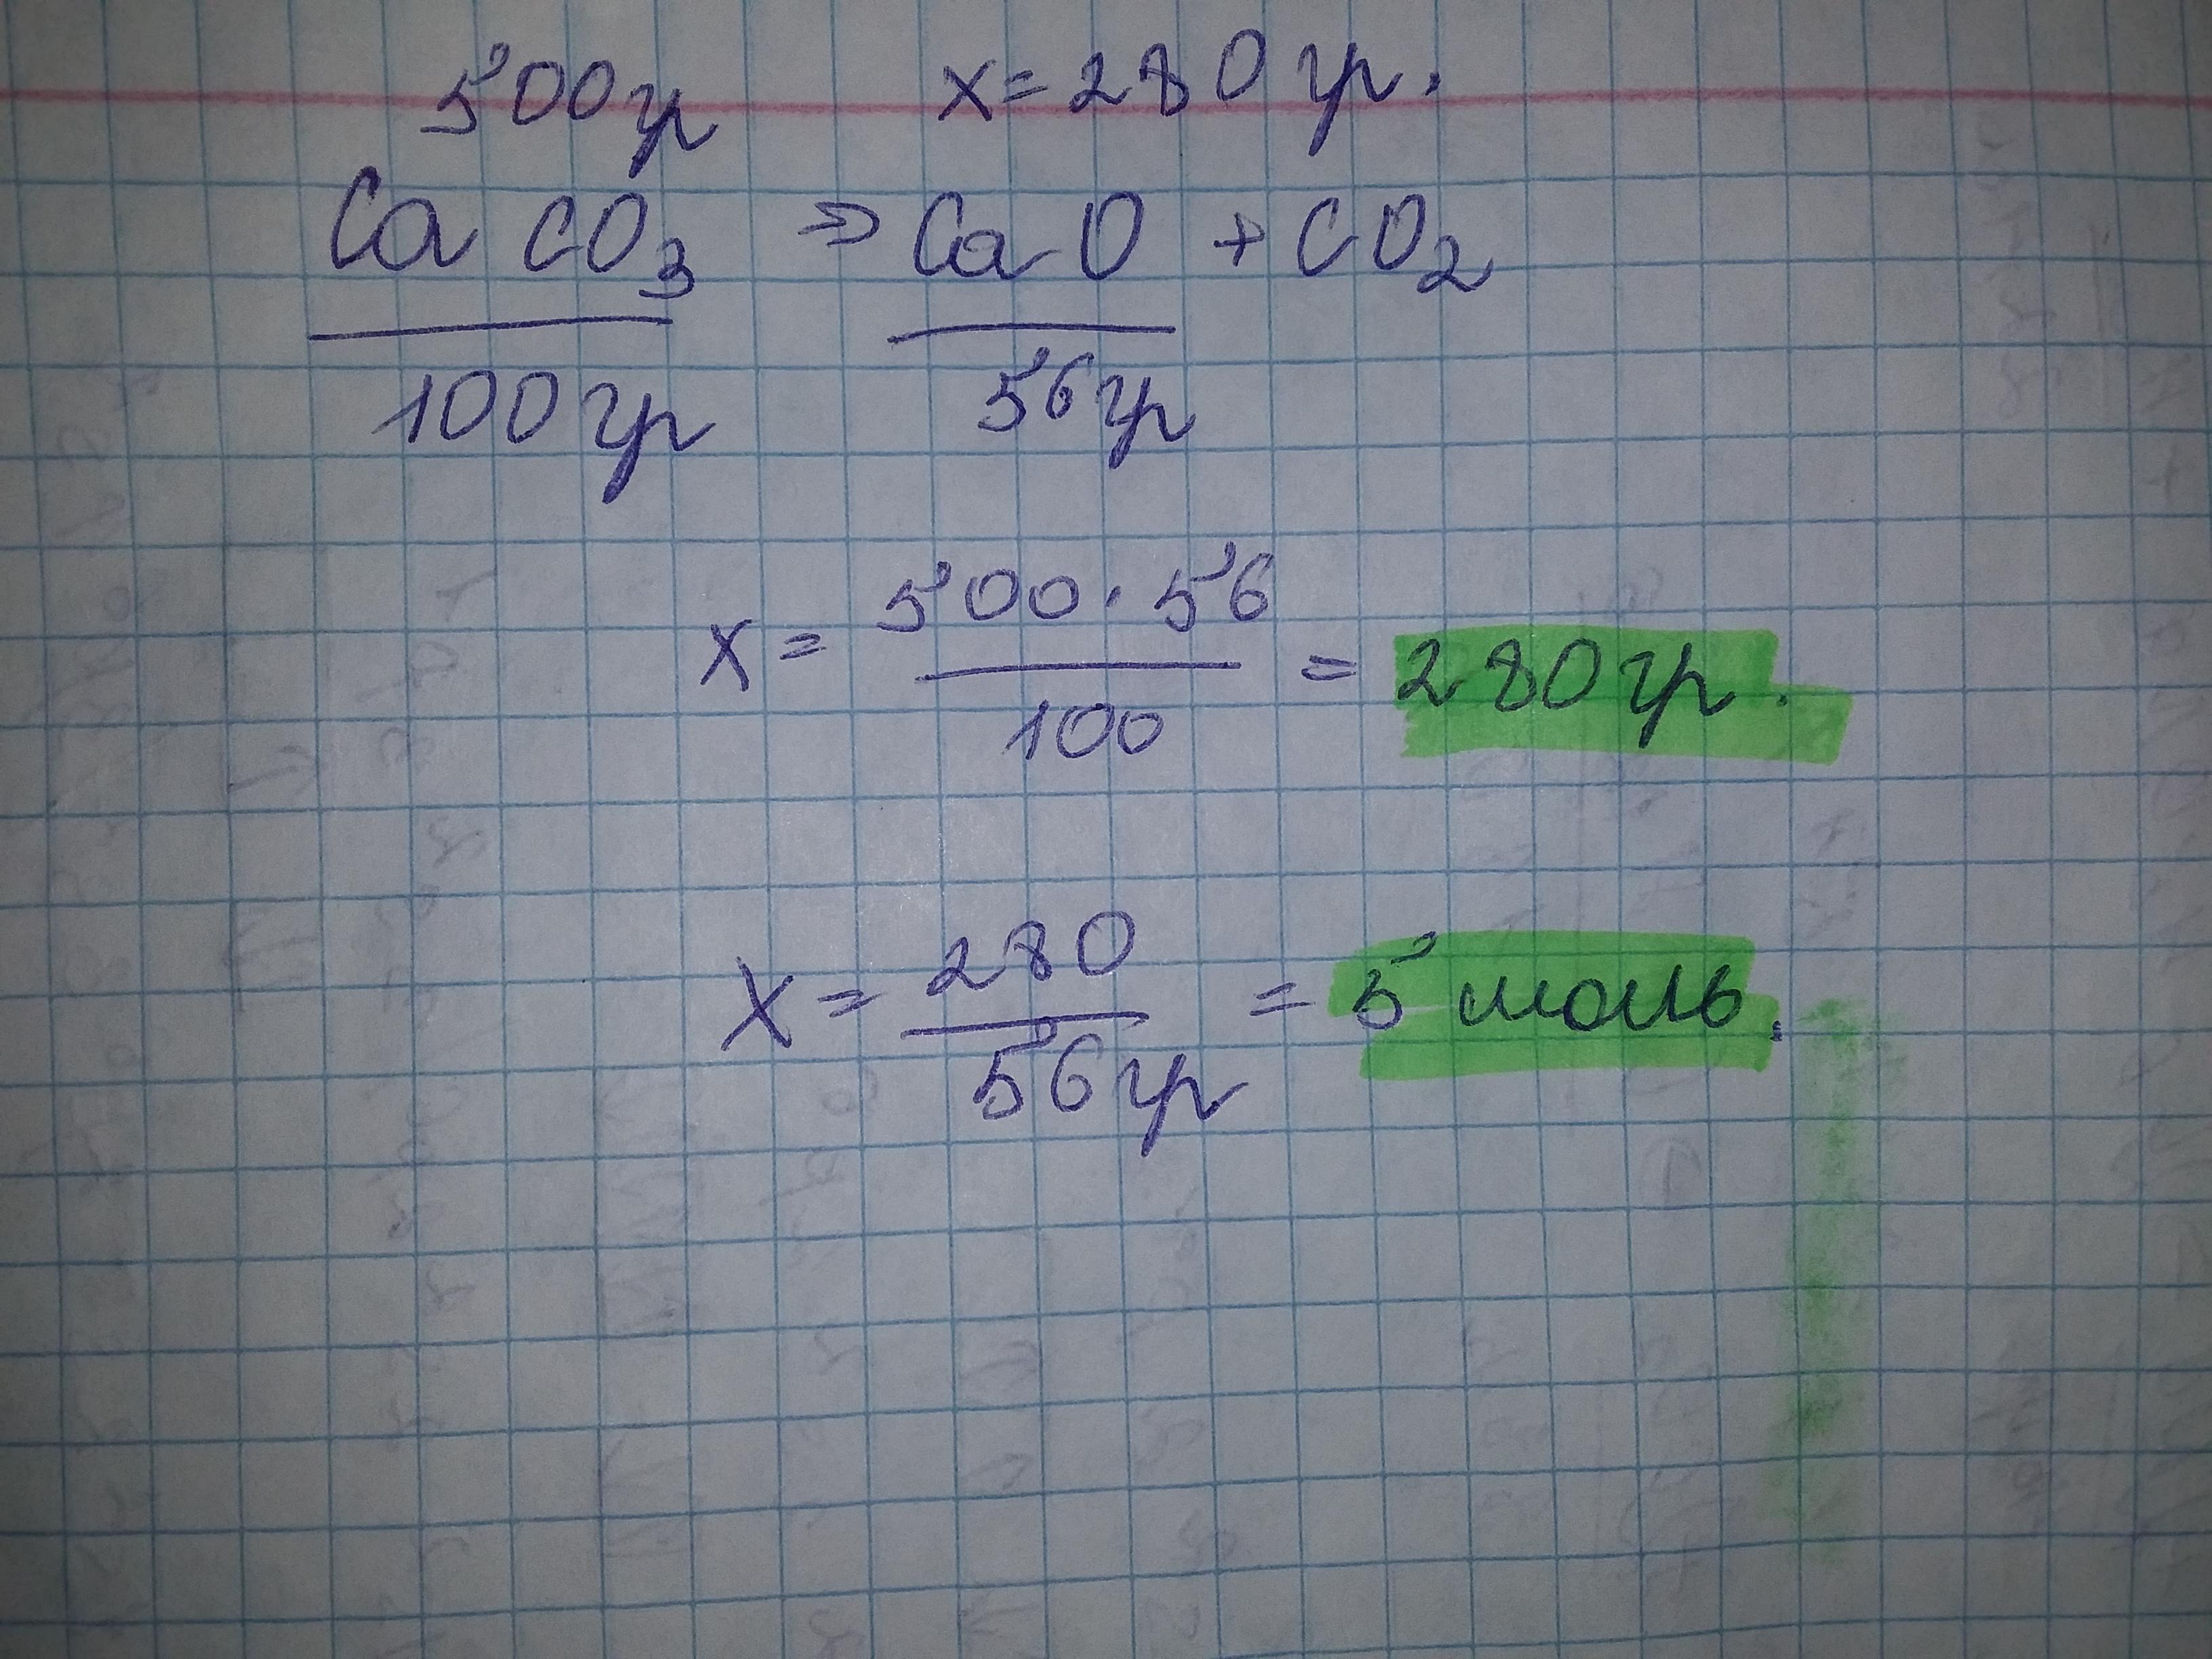 500гр x=280гр.
CaCO3 => CaO + CO2
100гр 56гр
x= 500·56 / 100 = 280гр.
x= 280 / 56гр = 5 моль.